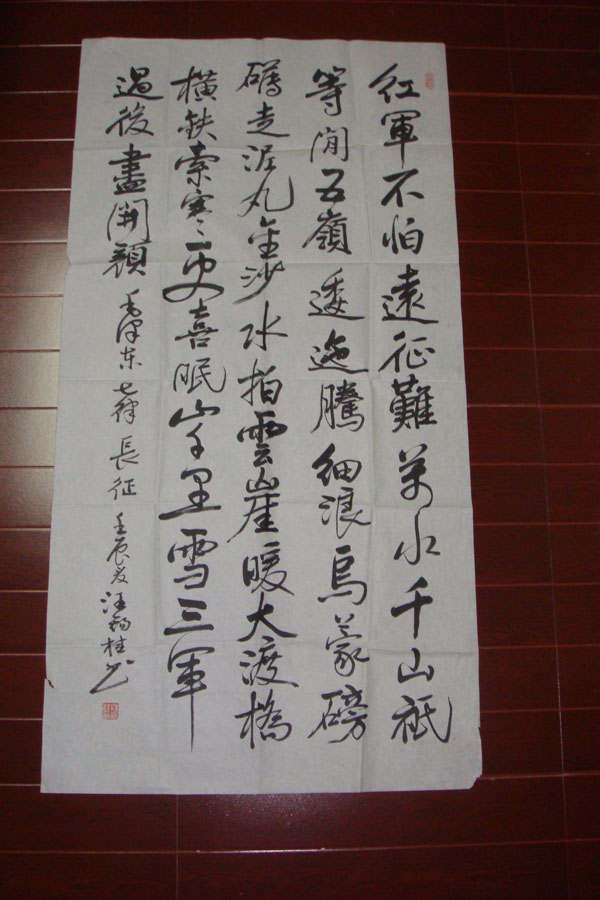 红軍不怕遠征難萬水千山衹
等閒五嶺逶迤騰細浪烏蒙磅
礴走泥丸金沙水拍雲崖暖大渡橋
横鉄索寒更喜眠山千里雪三軍
過後盡開顏 毛泽东七律長征 壬辰夏汪桂书